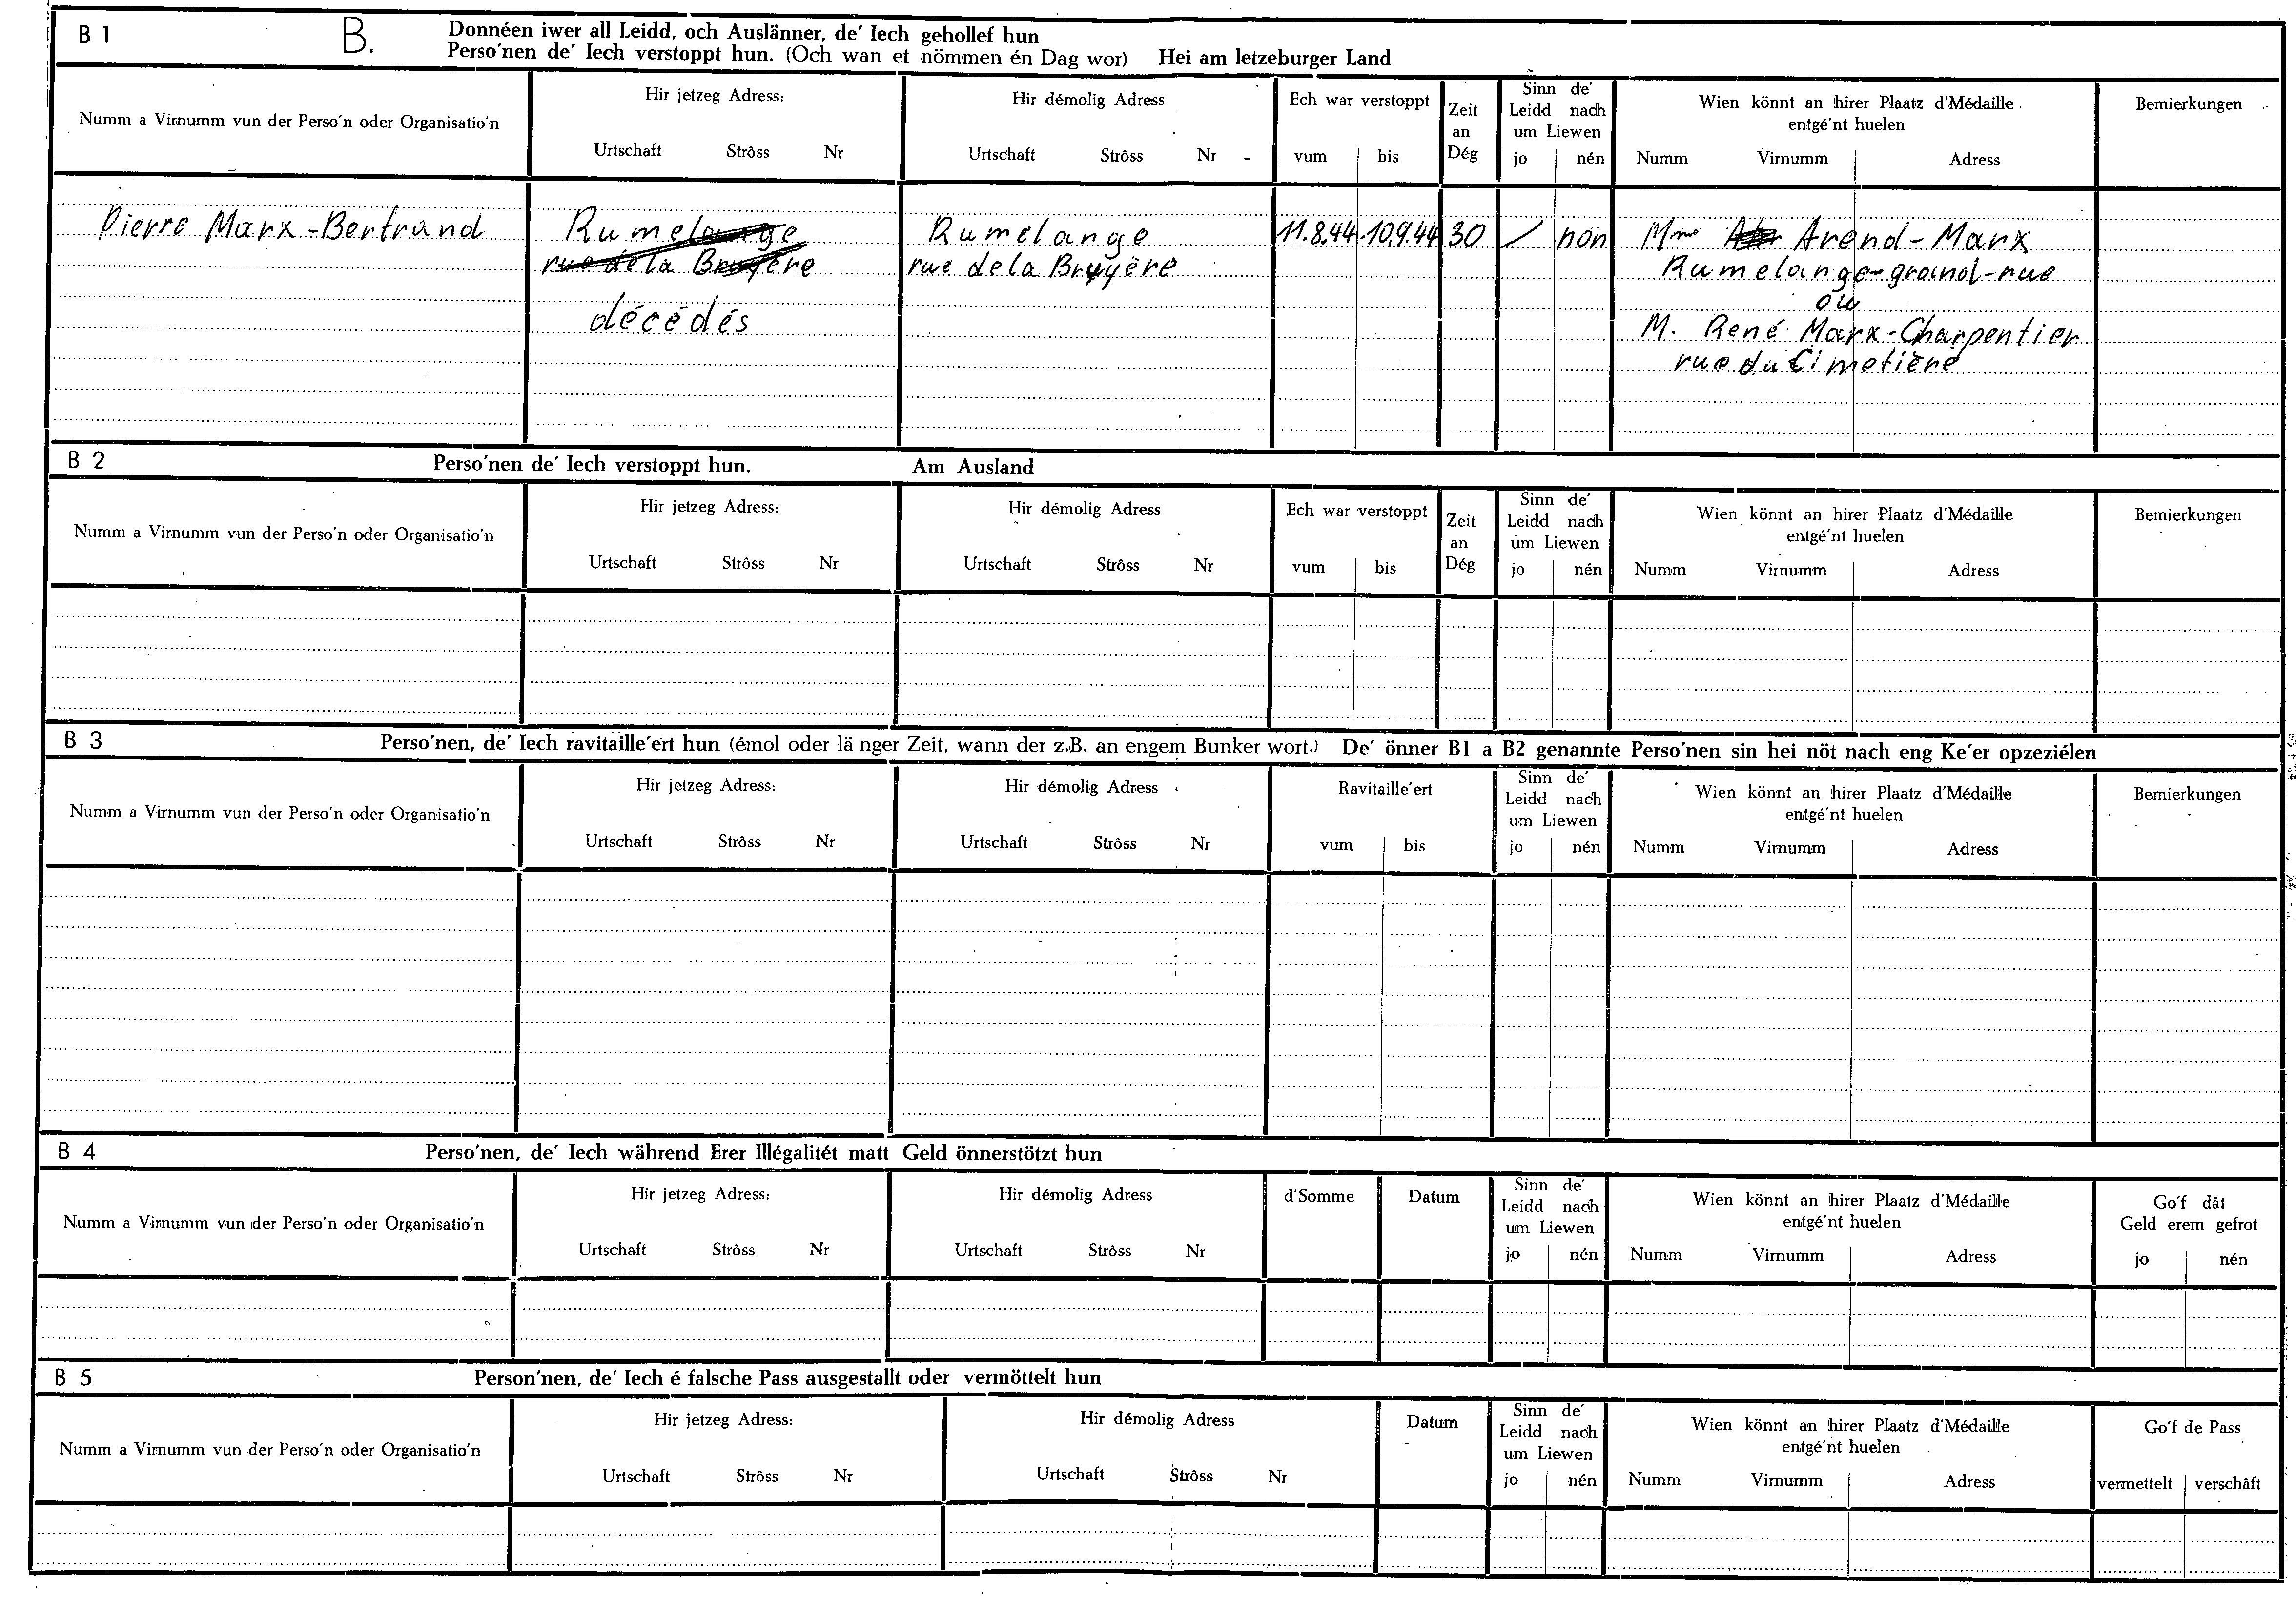 B 1
B.
Donnéen iwer all Leidd, och Auslänner, de' Iech gehollef hun
Perso'nen de' Iech verstoppt hun. (Och wan et nömmen én Dag wor) Hei am letzeburger Land
Numm a Virnumm vun der Perso'n oder Organisatio'n
Hir jetzeg Adress:
Urtschaft Strôss Nr
Hir démolig Adress
Urtschaft Strôss Nr
Ech war verstoppt
vum bis
Zeit
an
Dég
Sinn de'
Leidd nach
um Liewen
jo nén
Wien könnt an hirer Plaatz d'Médaille
entgé'nt huelen
Numm Virnumm Adress
Bemierkungen
Pierre Marx-Bertrand
Rumelange
rue de la Bruyère
décédés
Rumelange
rue de la Bruyère
11.8.44 10.9.44 30 / non
Mme Arend-Marx
Rumelange-grand-rue
ou
M. René Marx-Charpentier
rue du Cimetière
B 2
Perso'nen de' Iech verstoppt hun. Am Ausland
Numm a Virnumm vun der Perso'n oder Organisatio'n
Hir jetzeg Adress:
Urtschaft Strôss Nr
Hir démolig Adress
Urtschaft Strôss Nr
Ech war verstoppt
vum bis
Zeit
an
Dég
Sinn de'
Leidd nach
um Liewen
jo nén
Wien könnt an hirer Plaatz d'Médaille
entgé'nt huelen
Numm Virnumm Adress
Bemierkungen
B 3
Perso'nen, de' Iech ravitaille'ert hun (émol oder länger Zeit, wann der z.B. an engem Bunker wort.) De' önner B1 a B2 genannte Perso'nen sin hei nöt nach eng Ke'er opzeziélen
Numm a Virnumm vun der Perso'n oder Organisatio'n
Hir jetzeg Adress:
Urtschaft Strôss Nr
Hir démolig Adress
Urtschaft Strôss Nr
Ravitaille'ert
vum bis
Sinn de'
Leidd nach
um Liewen
jo nén
Wien könnt an hirer Plaatz d'Médaille
entgé'nt huelen
Numm Virnumm Adress
Bemierkungen
B 4
Perso'nen, de' Iech während Erer Illégalitét matt Geld önnerstötzt hun
Numm a Virnumm vun der Perso'n oder Organisatio'n
Hir jetzeg Adress:
Urtschaft Strôss Nr
Hir démolig Adress
Urtschaft Strôss Nr
d'Somme
Datum
Sinn de'
Leidd nach
um Liewen
jo nén
Wien könnt an hirer Plaatz d'Médaille
entgé'nt huelen
Numm Virnumm Adress
Go'f dât
Geld erem gefrot
jo nén
B 5
Person'nen, de' Iech é falsche Pass ausgestallt oder vermöttelt hun
Numm a Virnumm vun der Perso'n oder Organisatio'n
Hir jetzeg Adress:
Urtschaft Strôss Nr
Hir démolig Adress
Urtschaft Strôss Nr
Datum
Sinn de'
Leidd nach
um Liewen
jo nén
Wien könnt an hirer Plaatz d'Médaille
entgé'nt huelen
Numm Virnumm Adress
Go'f de Pass
vermettelt verschâft